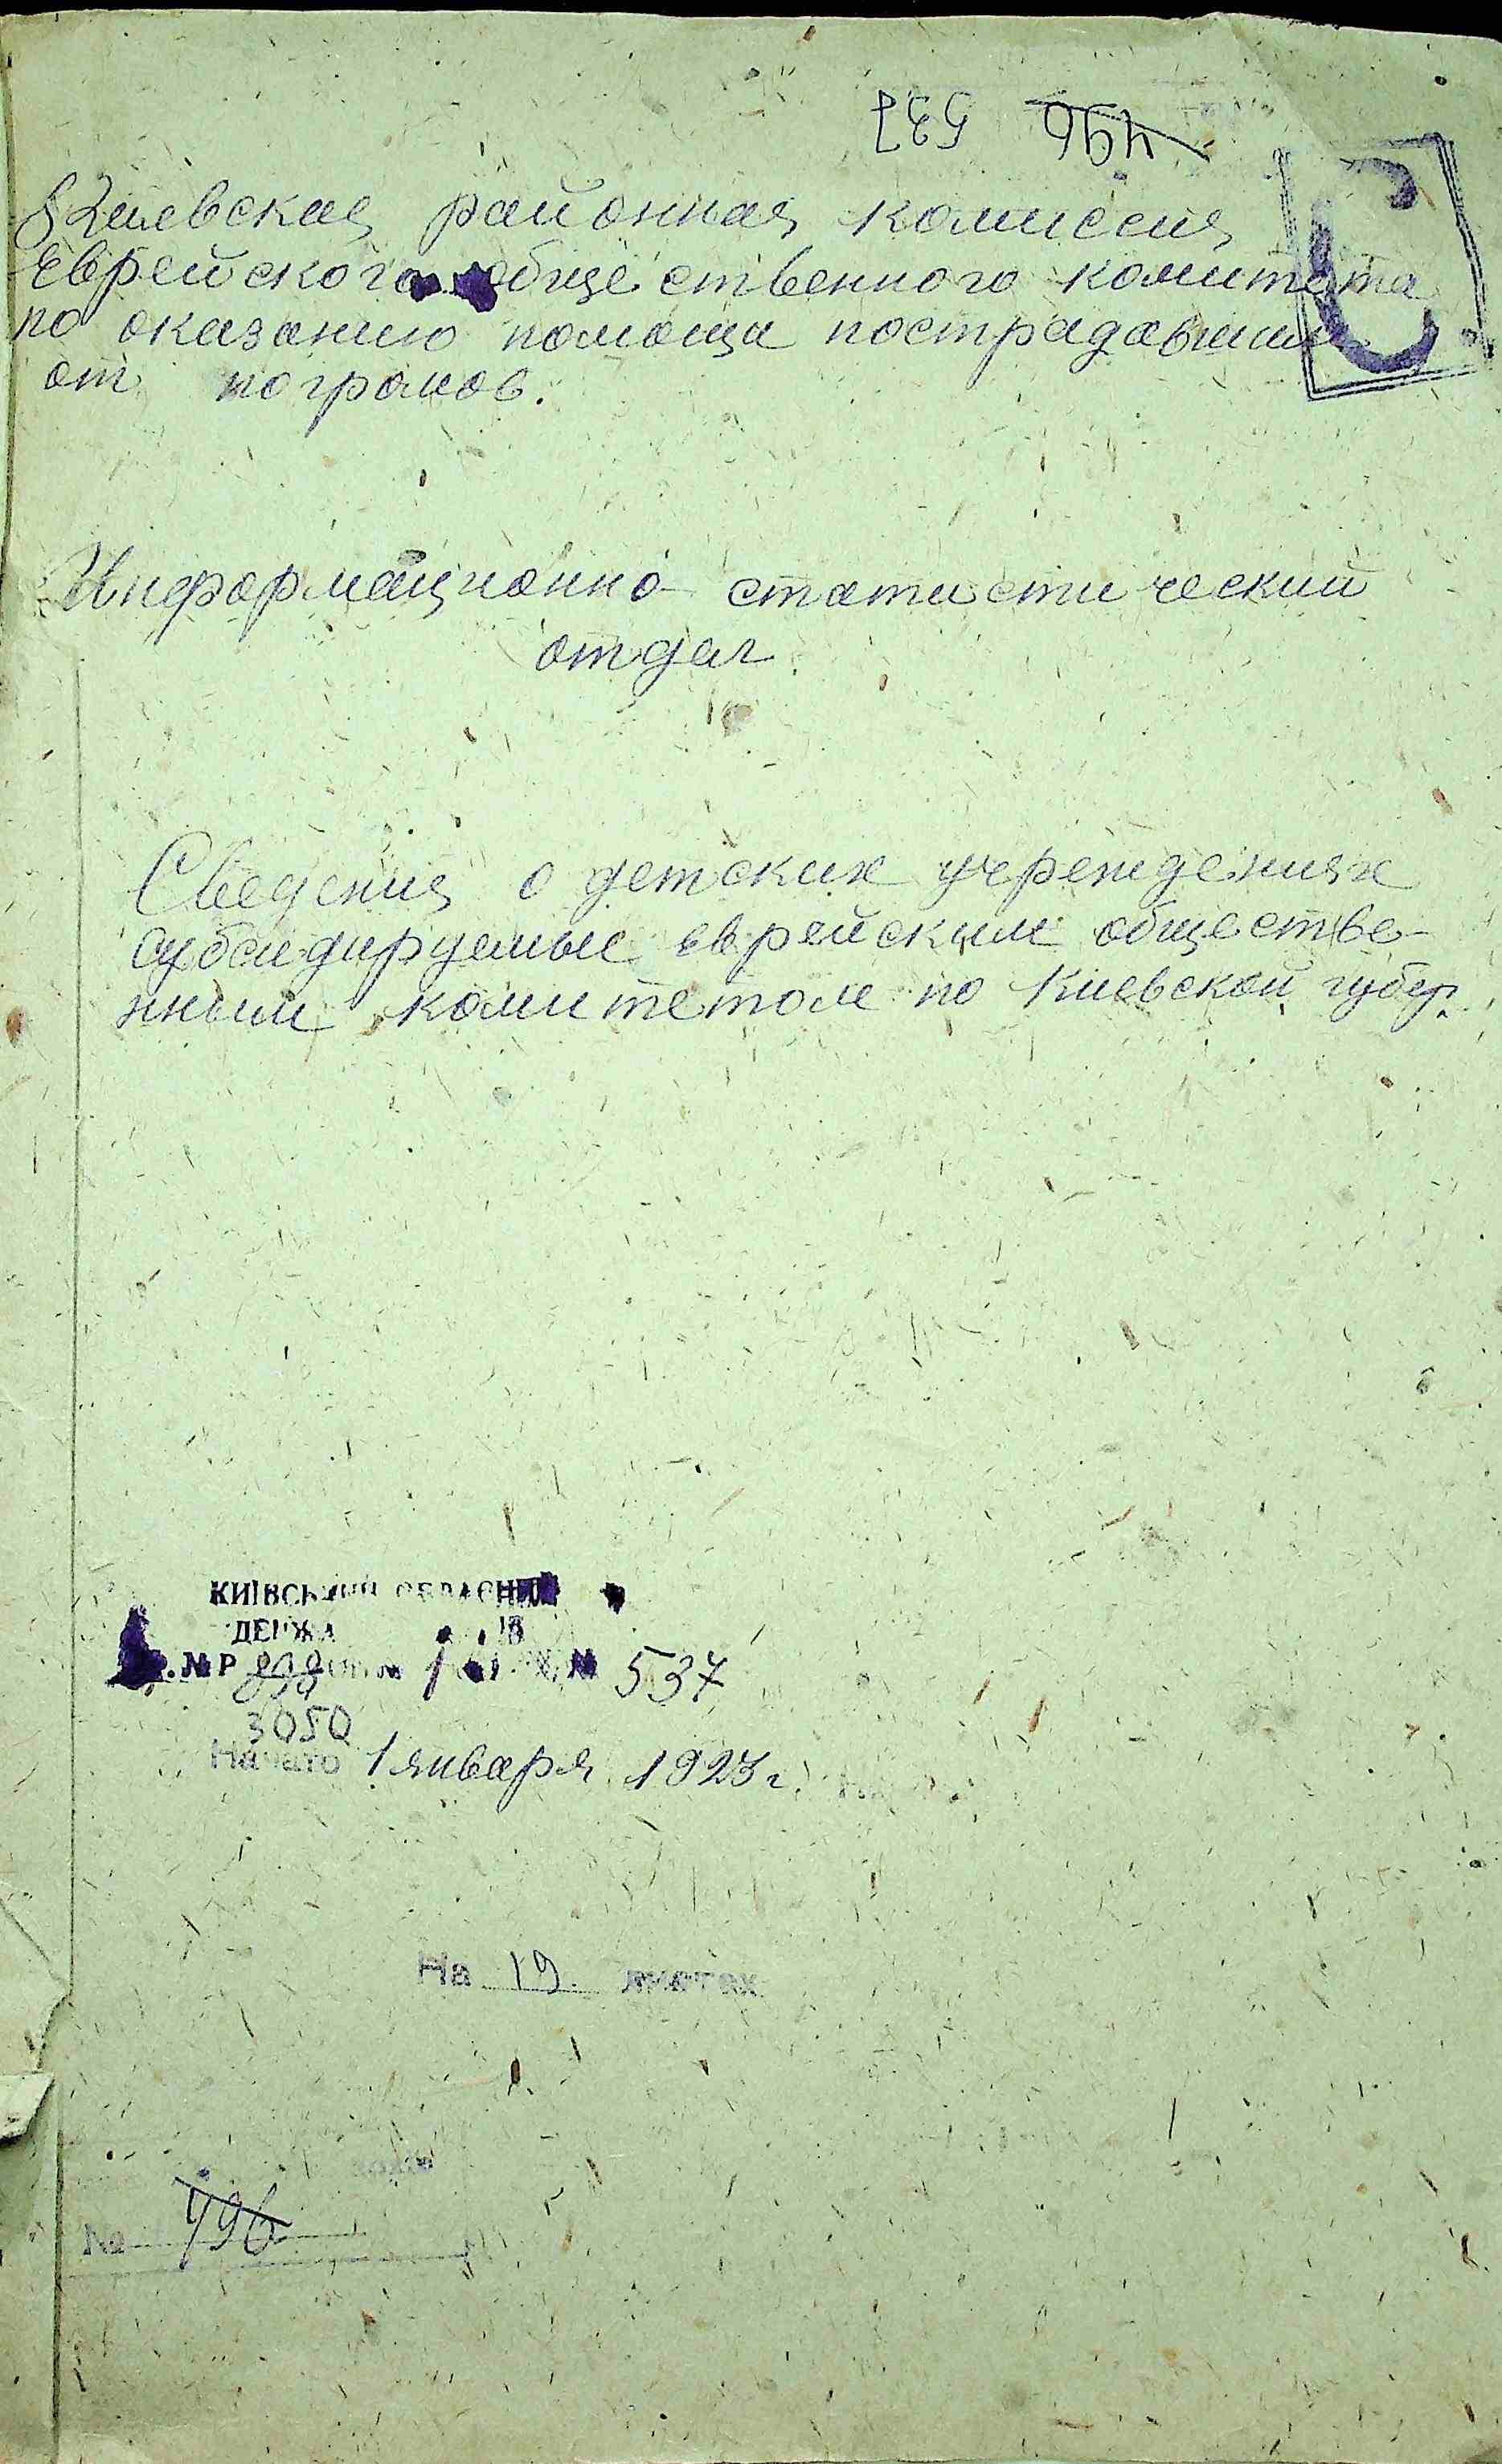 537 496
Киевская районная комиссия
Еврейского общественного комитета
по оказанию помощи пострадавшим
от погромов.
Информационно-статистический
отдел
Сведения о детских учреждениях
субсидируемые еврейским обществе-
нным комитетом по Киевской губер.
КИЇВСЬКИЙ ОБЛАСНИЙ
№ Р 537
3050
Начато 1 января 1923 г.
На 19 листах
№ 496